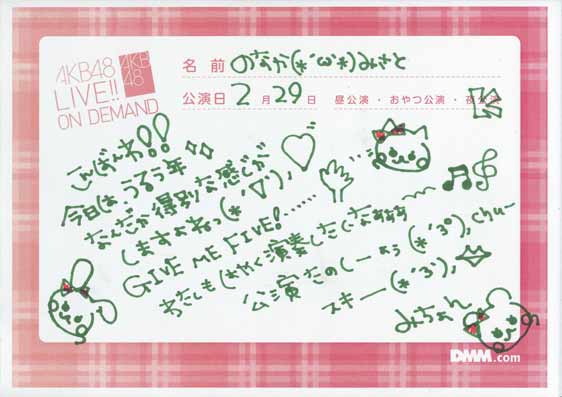 AKB48
LIVE!!
ON DEMAND
AKB
48
名前 のなか(*´ω`*)みさと
公演日 2月29日 昼公演・おやつ公演・夜公演
こんばんわ!!
今日は、うるう年
なんだか特別な感じが
しますよねっ(*´∇`)、
GIVE ME FIVE!......
わたしも早く演奏したいなぁぁぁ
公演たのしーよぅ(*´3°)、chu一
スキー(*´3`)、
みちょん
DMM.com